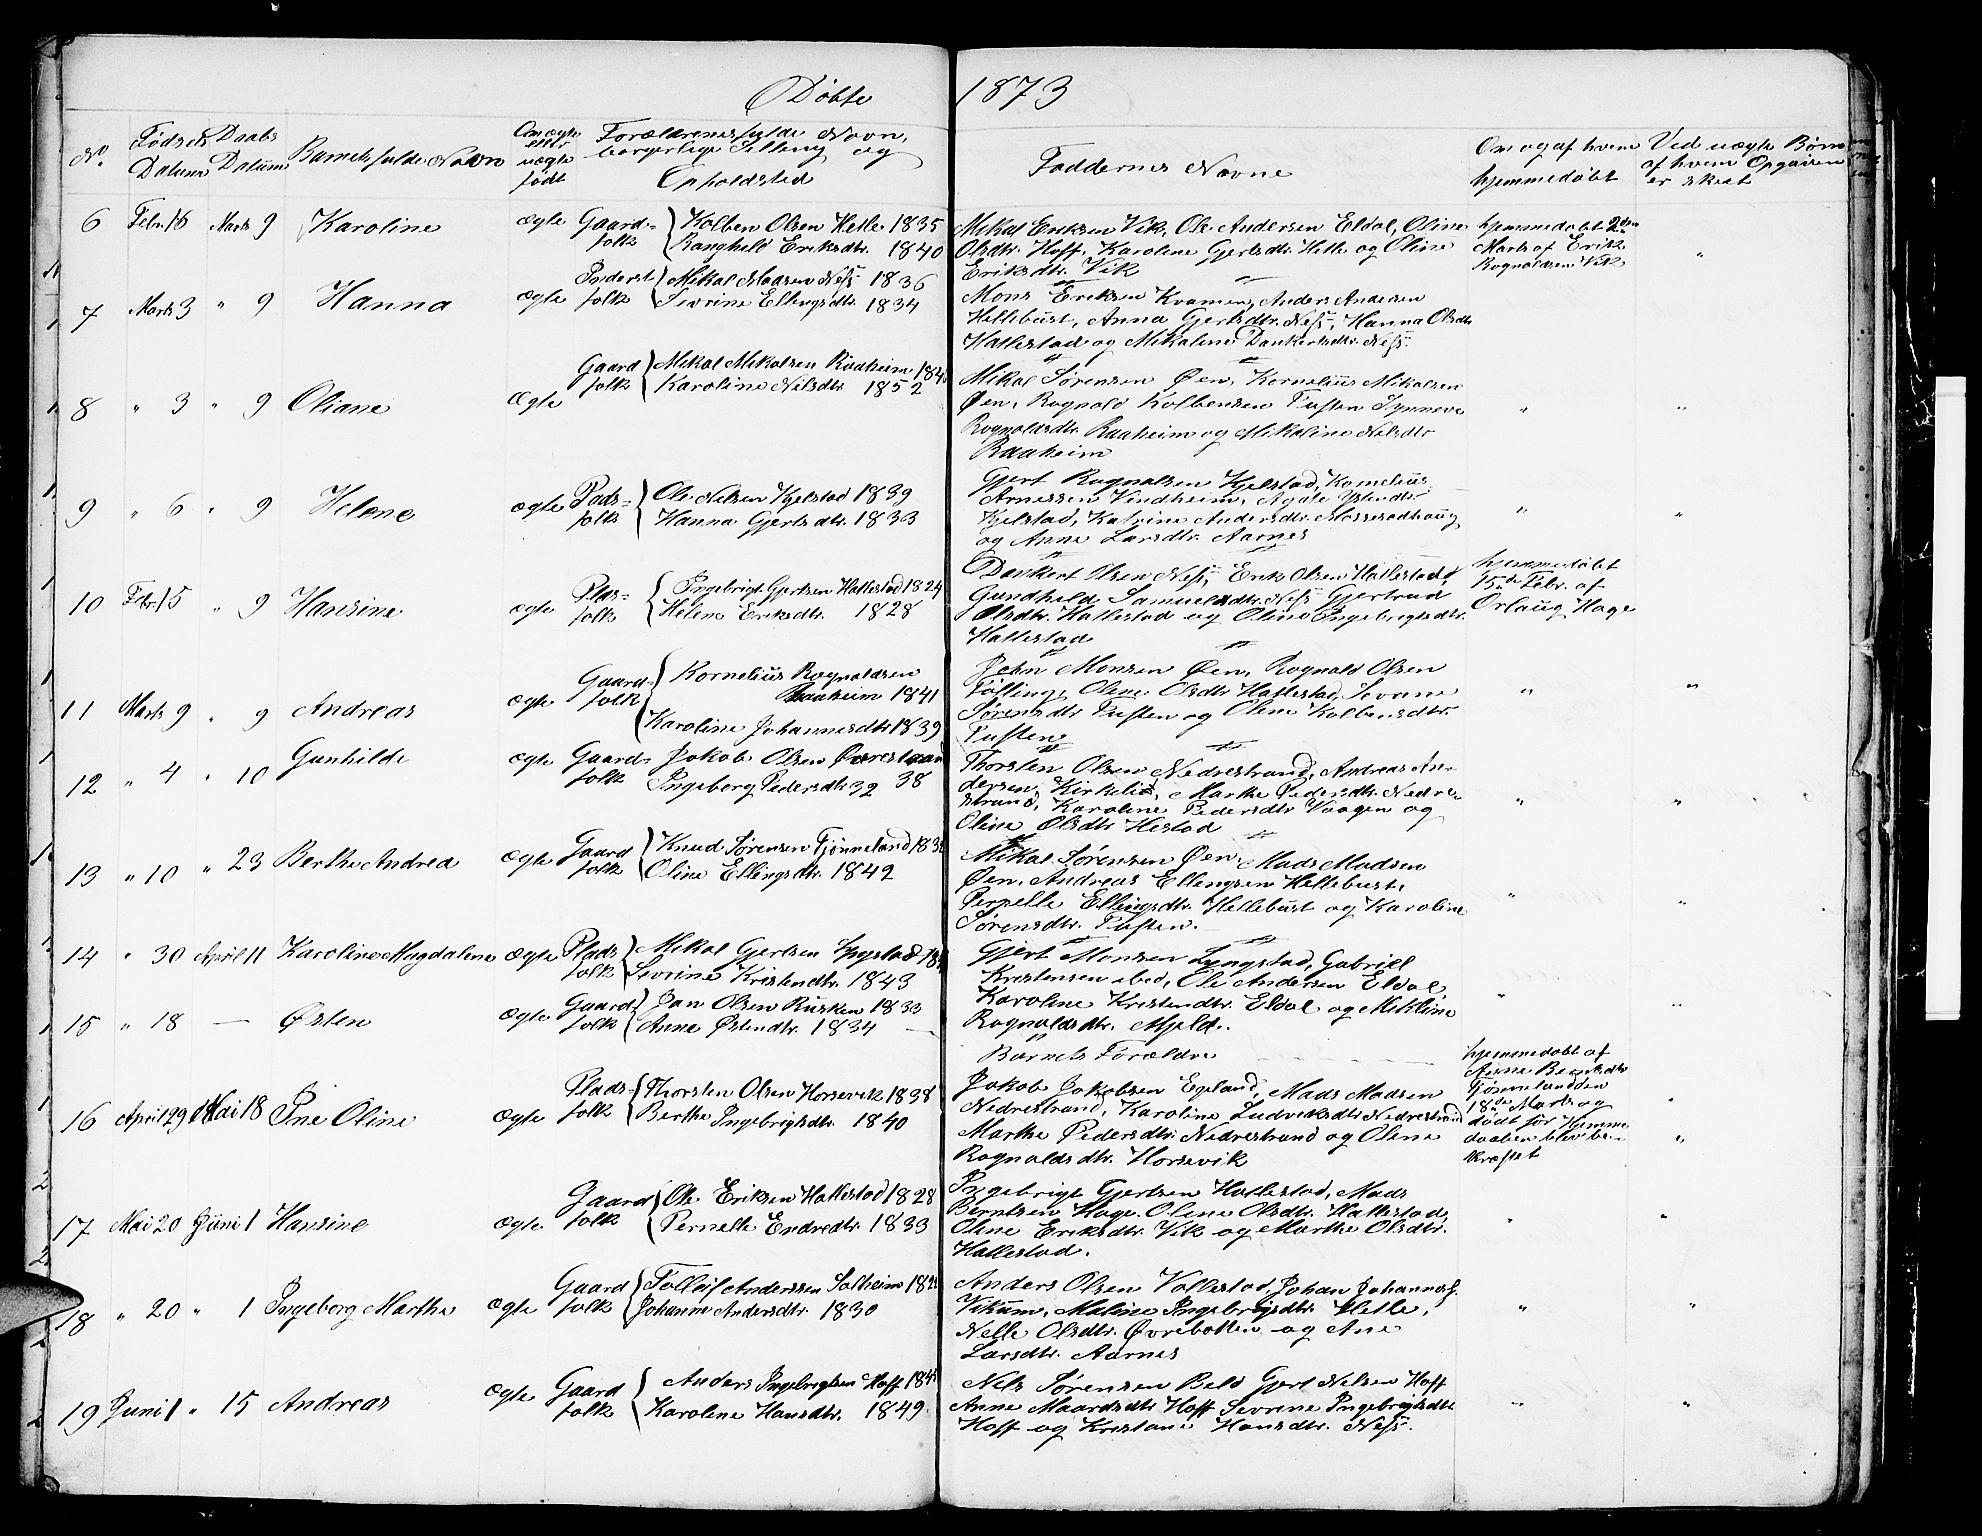 Døbte 1873
No. Fødsels Datum Daabs Datum Barnets fulde Navn Om ægte eller uægte født Forældrenes fulde Navn, borgerlige Stilling og Opholdsted Faddernes Navne Om og af hvem hjemmedøbt Ved uægte Børn af hvem Opgaven er skeet
6 Febr. 16 Marts 9 Karoline ægte Gaard= folk
Kolben Olsen Hetle 1835
Rangheld Eriksdtr. 1840
Mikal Eriksen Vik, Ole Andersen Eldal, Oline
Olsdtr. Hoff, Karoline Gjertsdtr. Hetle og Oline
Eriksdtr. Vik
hjemmedøbt 2den
Marts af Erik
Rognaldsen Vik "
7 Marts 3 " 9 Hanna ægte Inderst folk
Mikal Madsen Ness 1836
Sevrine Ellingsdtr. 1834
Mons Eriksen Kvamen, Anders Andersen
Hellebust, Anna Gjertsdtr. Ness, Hanna Olsdtr
Hatlestad og Mikaline Dankertsdtr. Ness.
8 " 3 " 9 Oliane Ægte Gaard folk
Mikal Mikalsen Rødheim 184
Karoline Nelsdtr 1852
Mikal Sørensen Øen, Kornelius Mikalsen
Øen, Rognald Kolbensen Tuften Synneve
Rognaldsdtr. Raaheim og Mikaline Nelsdtr
Raaheim
" "
9 " 6 " 9 Helene ægte Pads= folk
Ole Nelsen Kjelstad 1839
Hanna Gjertsdtr. 1833
Gjert Rognalsen Kjelstad, Kornelius
Arnessen Vindheim, Agate Østendtr
Kjelstad, Katrine Andersdtr. Mossesadhaug
og Anne Larsdtr. Aarnes
" "
10 Febr. 15 " 9 Hansine ægte Plads= folk
Ingebrigt Gjertsen Hatlestad 1824
Helene Eriksdtr. 1828
Dankert Olsen Ness, Erik Olsen Hatlestad,
Gundheld Samuelsdtr. Ness Gjertrud
Olsdtr. Hatlestad og Oline Ingebrigtsdtr.
Hatlestad
hjemmedøbt
15de Febr. af
Orlaug Hage
11 Marts 9 " 9 Andreas ægte Gaard= folk
Kornelius Rognaldsen
Raaheim 1841
Karoline Johannesdtr 1839
John Monsen Øen, Rognald Olsen
Tøllinge, Oline Olsdtr. Hatlestad, Severine
Sørensdtr Tuften og Oline Kolbensdtr.
Tuften
" "
12 " 4 " 10 Gunhilde ægte Gaard= folk
Jakob Olsen Øvrestrand
Ingeborg Pedersdtr 32 38
Thorsten Olsen Nedrestrand, Andreas An=
dersen Kirkelid, Marthe Pedersdtr. Nedre=
strand, Karoline Pedersdtr Vaagen og
Oline Olsdtr Hestad
" "
13 " 10 " 23 Berthe Andrea ægte Gaard folk
Knud Sørensen Tjønneland 183
Oline Ellingsdtr. 1842
Mikal Sørensen Øen, Mads Madsen
Øen, Andreas Ellengsen Hellebust,
Pernelle Ellingsdtr. Hellebust og Karoline
Sørensdtr. Tuften.
" "
14 " 30 April 11 Karoline Magdalene ægte Plads folk
Mikal Gjertsen Lyngstad 18
Sevrine Kristendtr. 1843
Gjert Monsen Lyngstad, Gabriel
Kristensen ibed, Ole Andersen Eldal
Karoline Kristendtr. Eldal og Mikline
Rognaldsdtr. Mjeld.
" "
15 " 18 — Østen ægte Gaard folk
Jan Olsen Risken 1833
Anne Østendtr. 1834 —
Barnets Forældre
hjemmedøbt af
Anne Bendiksdtr
Tjønneland den
18de Marts og
dødt før Hjemme
daaben blev be=
kræftet "
16 April 29 Mai 18 Ine Oline ægte Plads= folk
Thorsten Olsen Horsevik 1838
Berthe Ingebrigtsdtr. 1840
Jakob Jakobsen Egeland, Mads Madsen
Nedrestrand, Karoline Ludviksdtr. Nedrestrand
Marthe Pedersdtr. Nedrestrand og Olene
Rognaldsdtr. Horsevik
"
17 Mai 20 Juni 1 Hansine ægte Gaard folk
Ole Eriksen Hatlestad 1828
Pernelle Endredtr. 1833
Ingebrigt Gjertsen Hatlestad, Mads
Berntsen Hage, Olene Olsdtr. Hatlestad,
Oline Eriksdtr. Vik og Marthe Olsdtr.
Hatlestad.
" "
18 " 20 " 1 Ingeborg Marthe ægte Gaard folk
Tølløf Anderssen Solheim 182
Johanne Andersdtr. 1830
Anders Olsen Vallestad, Johan Johanness.
Vikum, Maline Ingebrigtsdtr. Hetle,
Nelle Olsdtr. Øvrebotten og Ane
Larsdtr. Aarnes
" "
19 Juni 1 " 15 Andreas ægte Gaard folk
Anders Ingebrigtsen Hoff 184
Karolene Hansdtr. 1849.
Nels Sørensen Beld Gjert Nelsen Hoff
Anne Maardsdtr Hoff Sevrine Ingebrigtsdtr
Hoff og Kristane Hansdtr. Ness.
" "